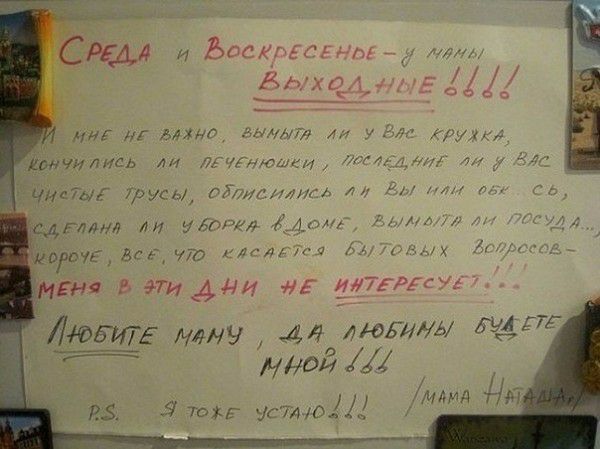 Среда и Воскресенье – у мамы
Выходные!!!!
И мне не важно, вымыта ли у Вас кружка,
кончились ли печенюшки, последние ли у Вас
чистые трусы, обписились ли Вы или обк...сь,
сделана ли уборка в доме, вымыта ли посуда...,
короче, всё, что касается бытовых вопросов –
меня в эти дни не интересует!!!
Любите маму, да любимы будете
мной!!!
P.S. Я тоже устаю!!!
/мама Наташа/
Warszawa